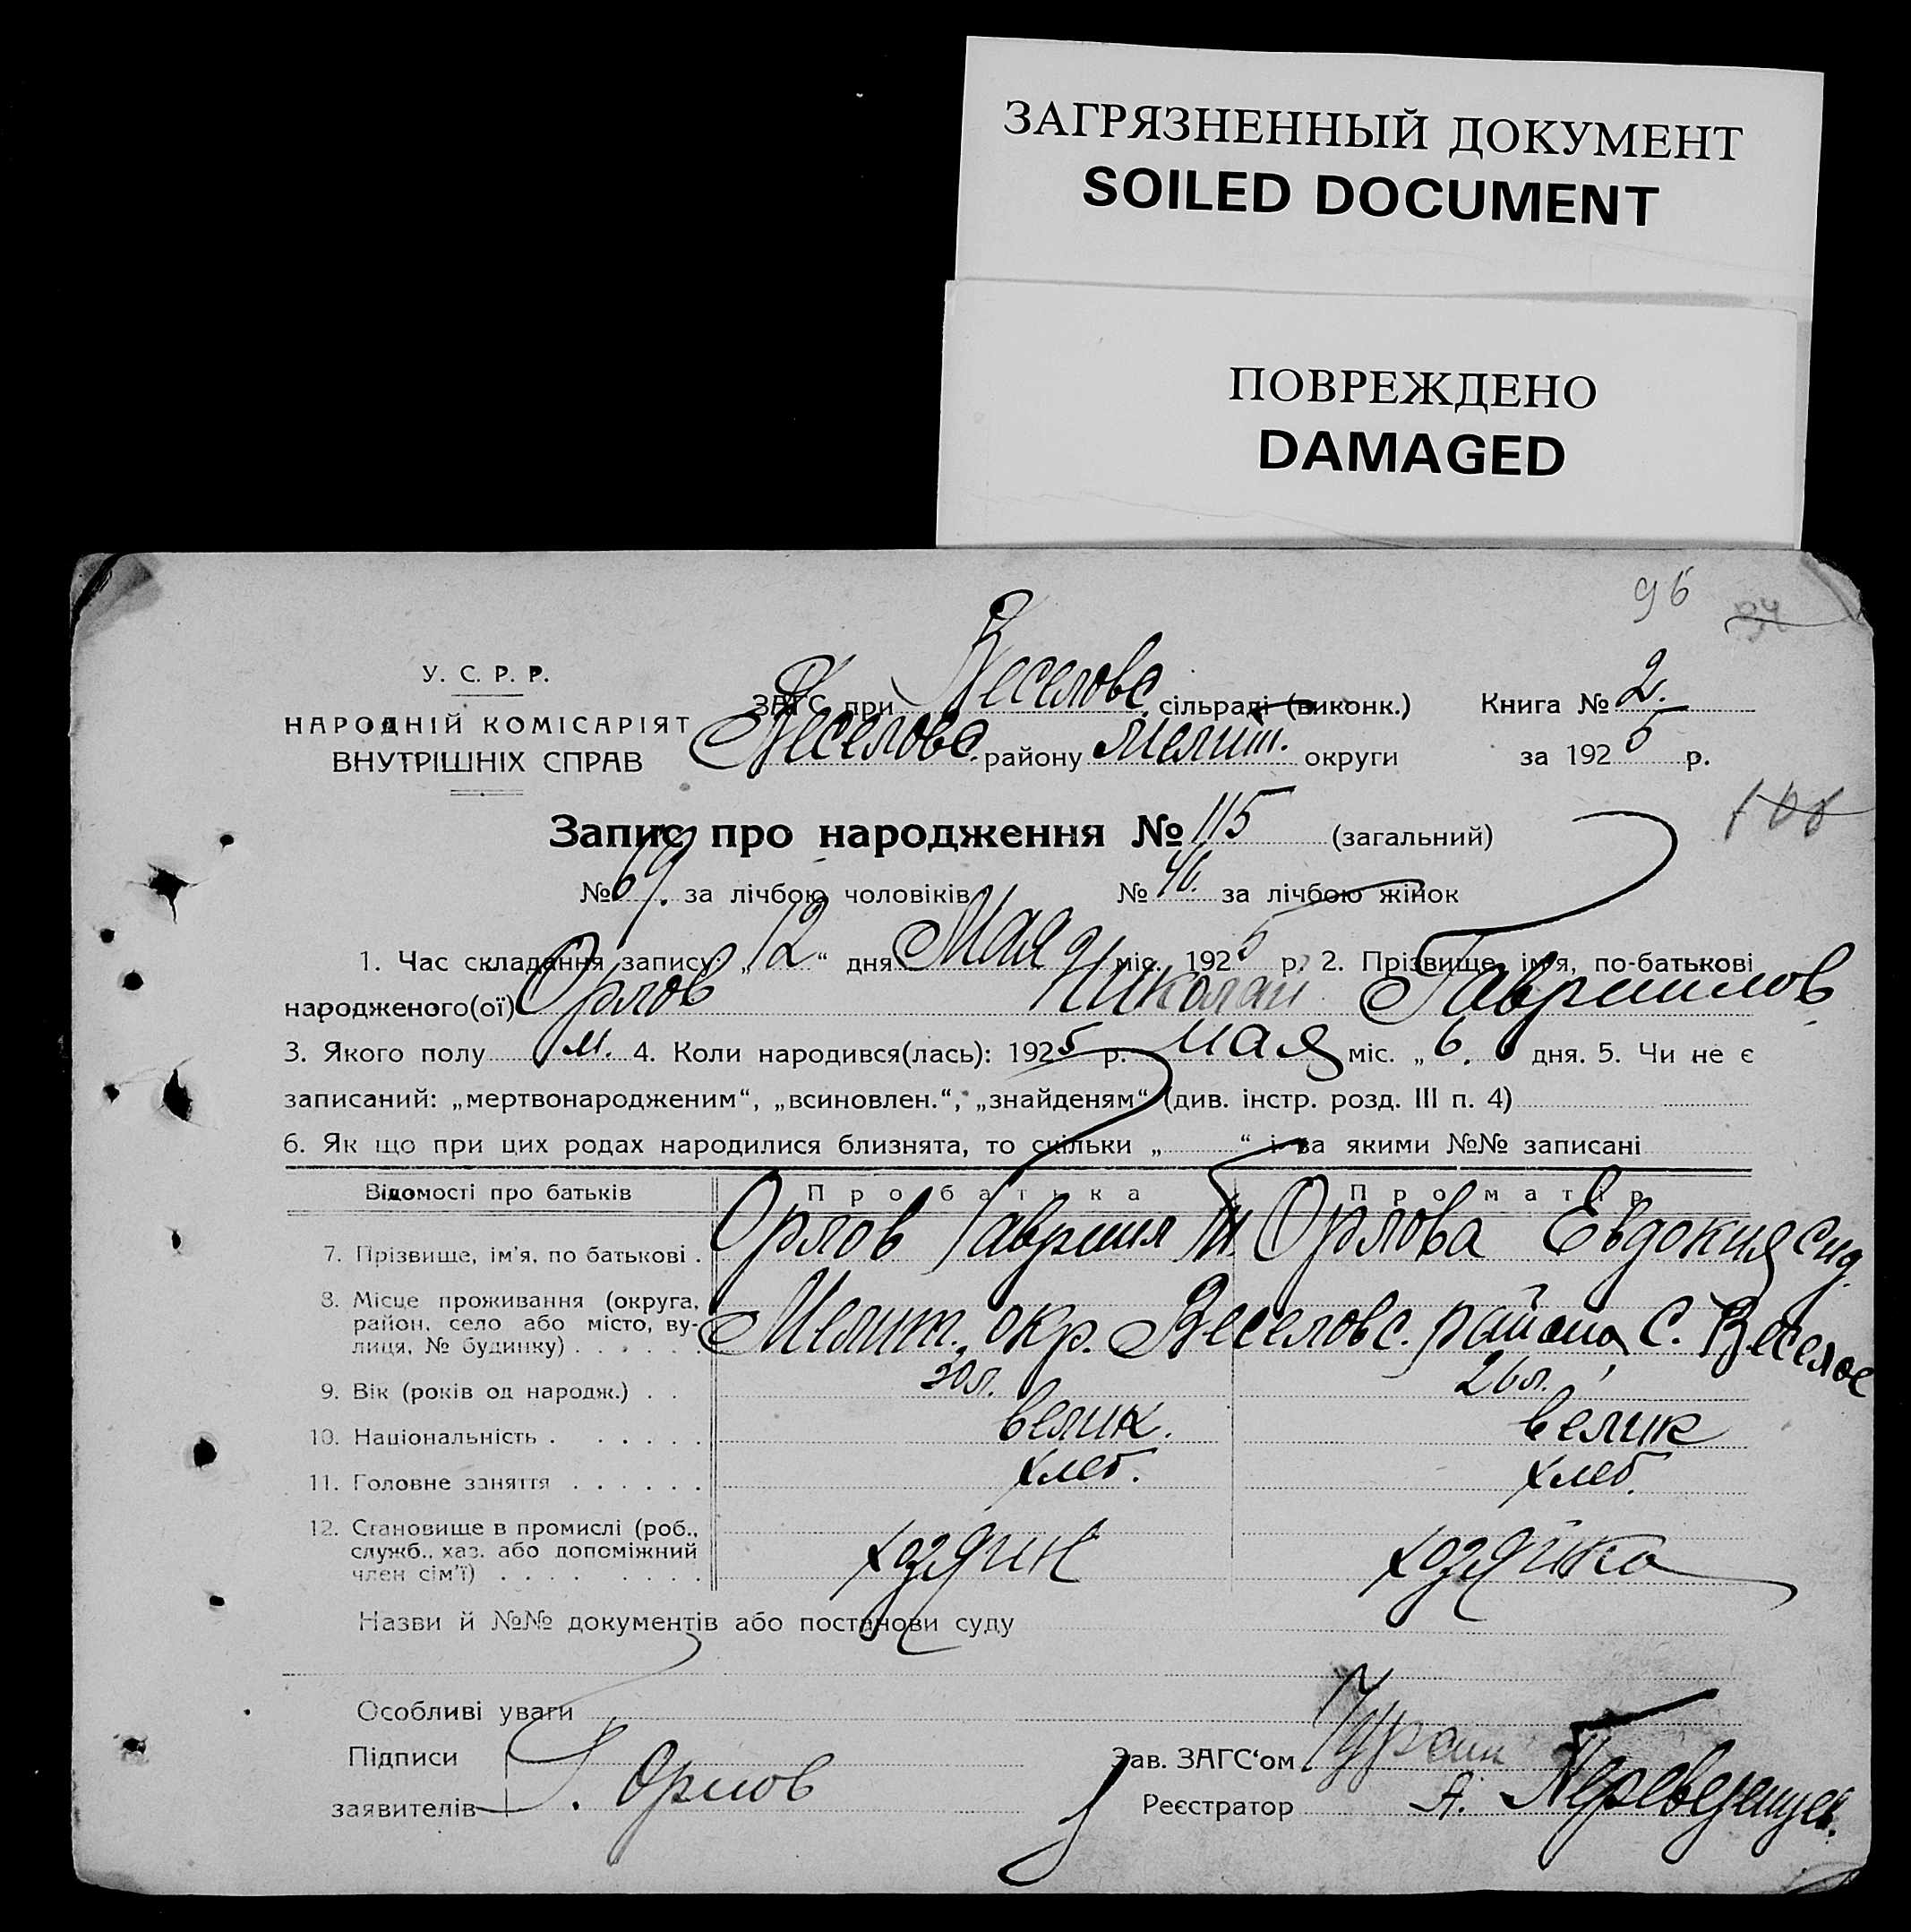 ЗАГРЯЗНЕННЫЙ ДОКУМЕНТ
SOILED DOCUMENT
ПОВРЕЖДЕНО
DAMAGED
96
У. С. Р. Р.
НАРОДНІЙ КОМІСАРІЯТ
ВНУТРІШНІХ СПРАВ
ЗАГС при Веселовс. сільраді (виконк.)
Веселовс. району Мелит. округи
Книга № 2.
за 1925 р.
Запис про народження № 115 (загальний)
№ 69. за лічбою чоловіків № 46. за лічбою жінок
1. Час складання запису: „12“ дня Мая міс. 1925 р. 2. Прізвище, ім'я, по-батькові
народженого(ої) Орлов Николай Гавриилов
3. Якого полу м. 4. Коли народився(лась): 1925 р. мая міс. „6. дня. 5. Чи не є
записаний: „мертвонародженим“, „всиновлен.“, „знайденям“ (див. інстр. розд. III п. 4)
6. Як що при цих родах народилися близнята, то скільки „ “ і за якими №№ записані
Відомості про батьків Про батька Про матір
7. Прізвище, ім'я, по батькові . Орлов Гавриил Орлова Евдокия Сид.
8. Місце проживання (округа,
район, село або місто, ву-
лиця, № будинку) . . . . . . Мелит. окр. Веселовс. района, с. Веселое
9. Вік (років од народж.) . . 30 л. 26 л.
10. Національність . . . . . . велик. велик
11. Головне заняття . . . . . . хлеб. хлеб.
12. Становище в промислі (роб.,
служб., хаз. або допоміжний
член сім'ї) . . . . . . . . хозяин хозяйка
Назви й №№ документів або постанови суду
Особливі уваги
Підписи
заявителів Г. Орлов
Зав. ЗАГС‘ом
Реєстратор А. Переверзенцев.